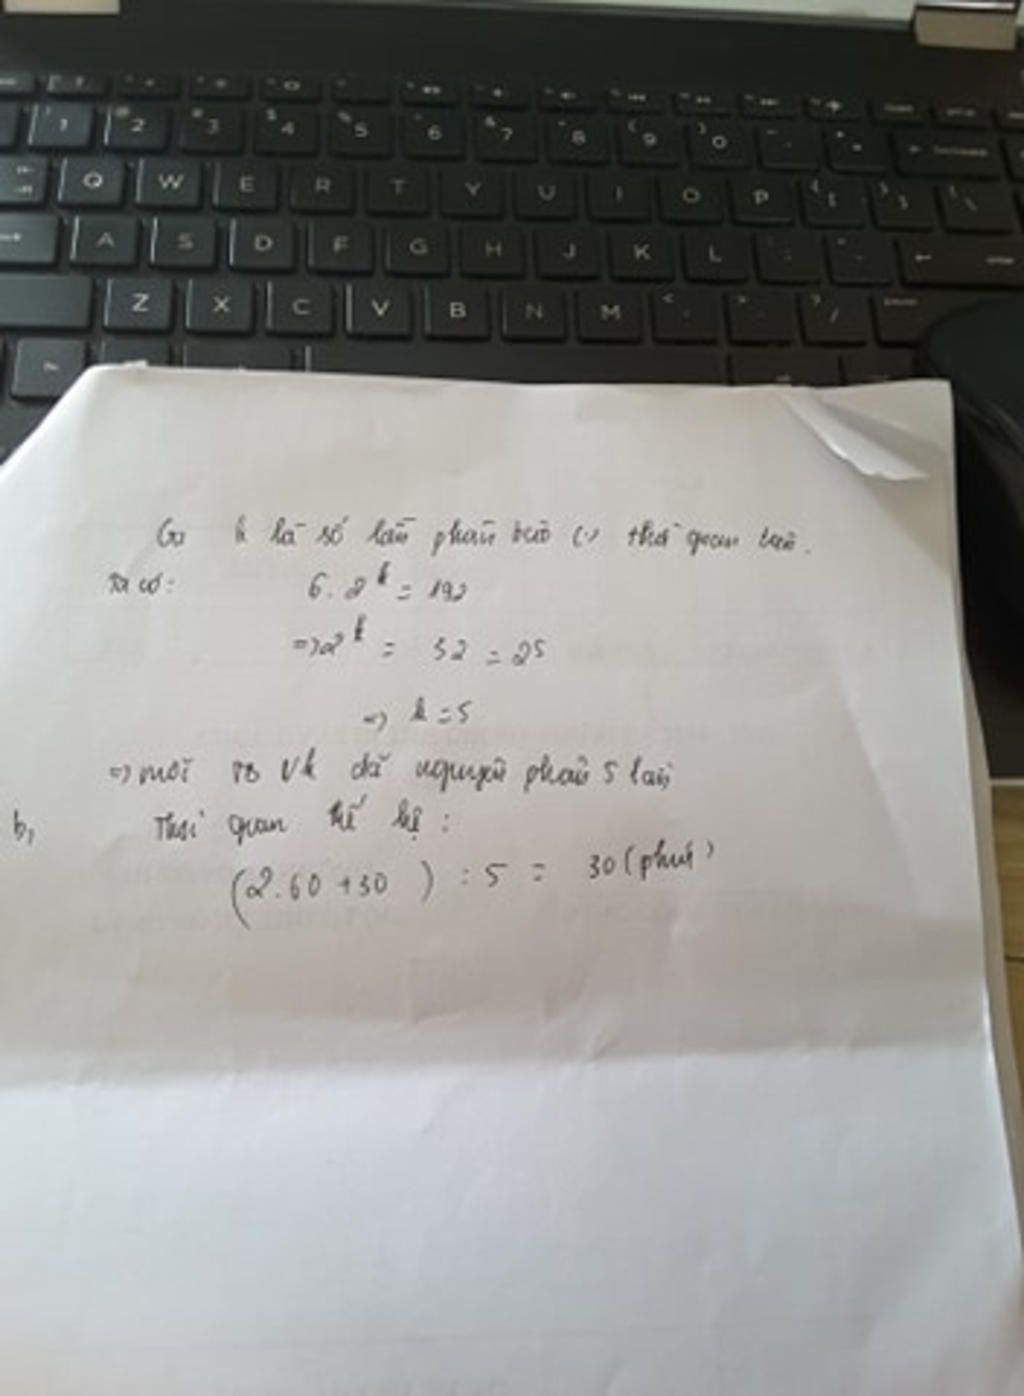 1 2 3 4 5 6 7 8 9 0
Q W E R T Y U I O P
A S D F G H J K L
Z X C V B N M
k là số lần phân bào thời quan trên.
Ta có: 6.2^k = 192
=> 2^k = 32 = 2^5
=> k = 5
=> mỗi TB VK đã nguyên phân 5 lần
b, Thời quan thế hệ:
(2.60 + 30) : 5 = 30 (phút)